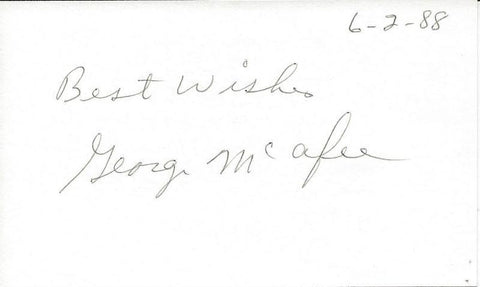 6-2-88
Best Wishes
George McAfee